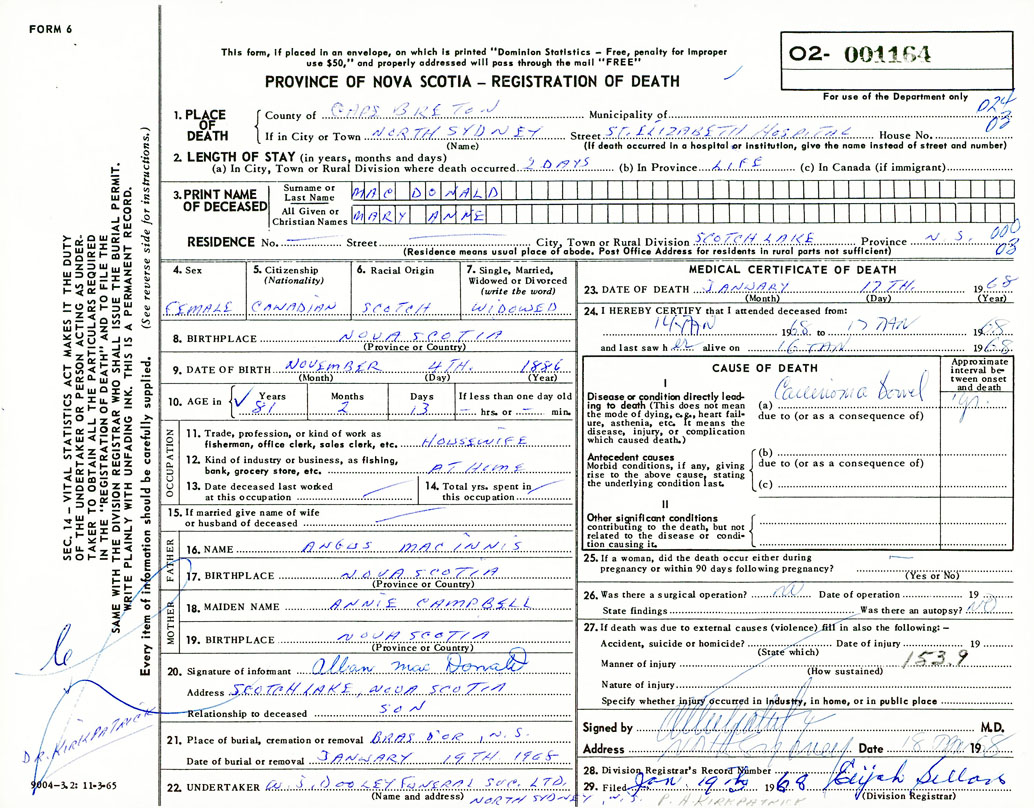 FORM 6
This form, if placed in an envelope, on which is printed "Dominion Statistics – Free, penalty for improper
use $50," and properly addressed will pass through the mail "FREE"
PROVINCE OF NOVA SCOTIA – REGISTRATION OF DEATH
02- 001164
For use of the Department only
024
03
1. PLACE OF DEATH
County of CAPE BRETON Municipality of
If in City or Town NORTH SYDNEY Street ST. ELIZABETH HOSPITAL House No.
(Name) (If death occurred in a hospital or institution, give the name instead of street and number)
2. LENGTH OF STAY (in years, months and days)
(a) In City, Town or Rural Division where death occurred 2 DAYS (b) In Province LIFE (c) In Canada (if immigrant)
3. PRINT NAME OF DECEASED
Surname or Last Name MAC DONALD
All Given or Christian Names MARY ANNE
RESIDENCE No. Street City, Town or Rural Division SCOTCH LAKE Province N.S. 000
03
(Residence means usual place of abode. Post Office Address for residents in rural parts not sufficient)
4. Sex
FEMALE
5. Citizenship
(Nationality)
CANADIAN
6. Racial Origin
SCOTCH
7. Single, Married,
Widowed or Divorced
(write the word)
WIDOWED
8. BIRTHPLACE NOVA SCOTIA
(Province or Country)
9. DATE OF BIRTH NOVEMBER 4TH. 1886
(Month) (Day) (Year)
10. AGE in Years Months Days If less than one day old
81 2 13 hrs. or min.
OCCUPATION
11. Trade, profession, or kind of work as
fisherman, office clerk, sales clerk, etc. HOUSEWIFE
12. Kind of industry or business, as fishing,
bank, grocery store, etc. AT HOME
13. Date deceased last worked
at this occupation
14. Total yrs. spent in
this occupation
15. If married give name of wife
or husband of deceased
FATHER
16. NAME ANGUS MAC INNIS
17. BIRTHPLACE NOVA SCOTIA
(Province or Country)
MOTHER
18. MAIDEN NAME ANNIE CAMPBELL
19. BIRTHPLACE NOVA SCOTIA
(Province or Country)
20. Signature of informant Allan Mac Donald
Address SCOTCH LAKE, NOVA SCOTIA
Relationship to deceased SON
21. Place of burial, cremation or removal BRAS D'OR, N.S.
Date of burial or removal JANUARY 19TH 1968
22. UNDERTAKER W.S. DOOLEY FUNERAL SVC. LTD.
(Name and address) NORTH SYDNEY, N.S.
MEDICAL CERTIFICATE OF DEATH
23. DATE OF DEATH JANUARY 17TH. 1968
(Month) (Day) (Year)
24. I HEREBY CERTIFY that I attended deceased from:
14 JAN 1968 to 17 JAN 1968
and last saw her alive on 16 JAN 1968
CAUSE OF DEATH
Approximate
interval be-
tween onset
and death
I
Disease or condition directly lead-
ing to death (This does not mean
the mode of dying, e.g., heart fail-
ure, asthenia, etc. It means the
disease, injury, or complication
which caused death.)
(a) Carcinoma Bowel
due to (or as a consequence of)
yr.
Antecedent causes
Morbid conditions, if any, giving
rise to the above cause, stating
the underlying condition last.
(b)
due to (or as a consequence of)
(c)
II
Other significant conditions
contributing to the death, but not
related to the disease or condi-
tion causing it.
25. If a woman, did the death occur either during
pregnancy or within 90 days following pregnancy?
(Yes or No)
26. Was there a surgical operation? NO Date of operation 19
State findings Was there an autopsy? NO
27. If death was due to external causes (violence) fill in also the following:–
Accident, suicide or homicide? Date of injury 19
(State which)
Manner of injury 153.9
(How sustained)
Nature of injury
Specify whether injury occurred in industry, in home, or in public place
Signed by M.D.
Address North Sydney Date 18 Jan 1968
28. Division Registrar's Record Number 3
29. Filed Jan 19 1968 Elijah
(Division Registrar)
P. A. KIRKPATRICK
SEC. 14 – VITAL STATISTICS ACT MAKES IT THE DUTY
OF THE UNDERTAKER OR PERSON ACTING AS UNDER-
TAKER TO OBTAIN ALL THE PARTICULARS REQUIRED
IN THE "REGISTRATION OF DEATH" AND TO FILE THE
SAME WITH THE DIVISION REGISTRAR WHO SHALL ISSUE THE BURIAL PERMIT.
WRITE PLAINLY WITH UNFADING INK. THIS IS A PERMANENT RECORD.
Every item of information should be carefully supplied. (See reverse side for instructions.)
DR. KIRKPATRICK
9004-3.2: 11-3-65